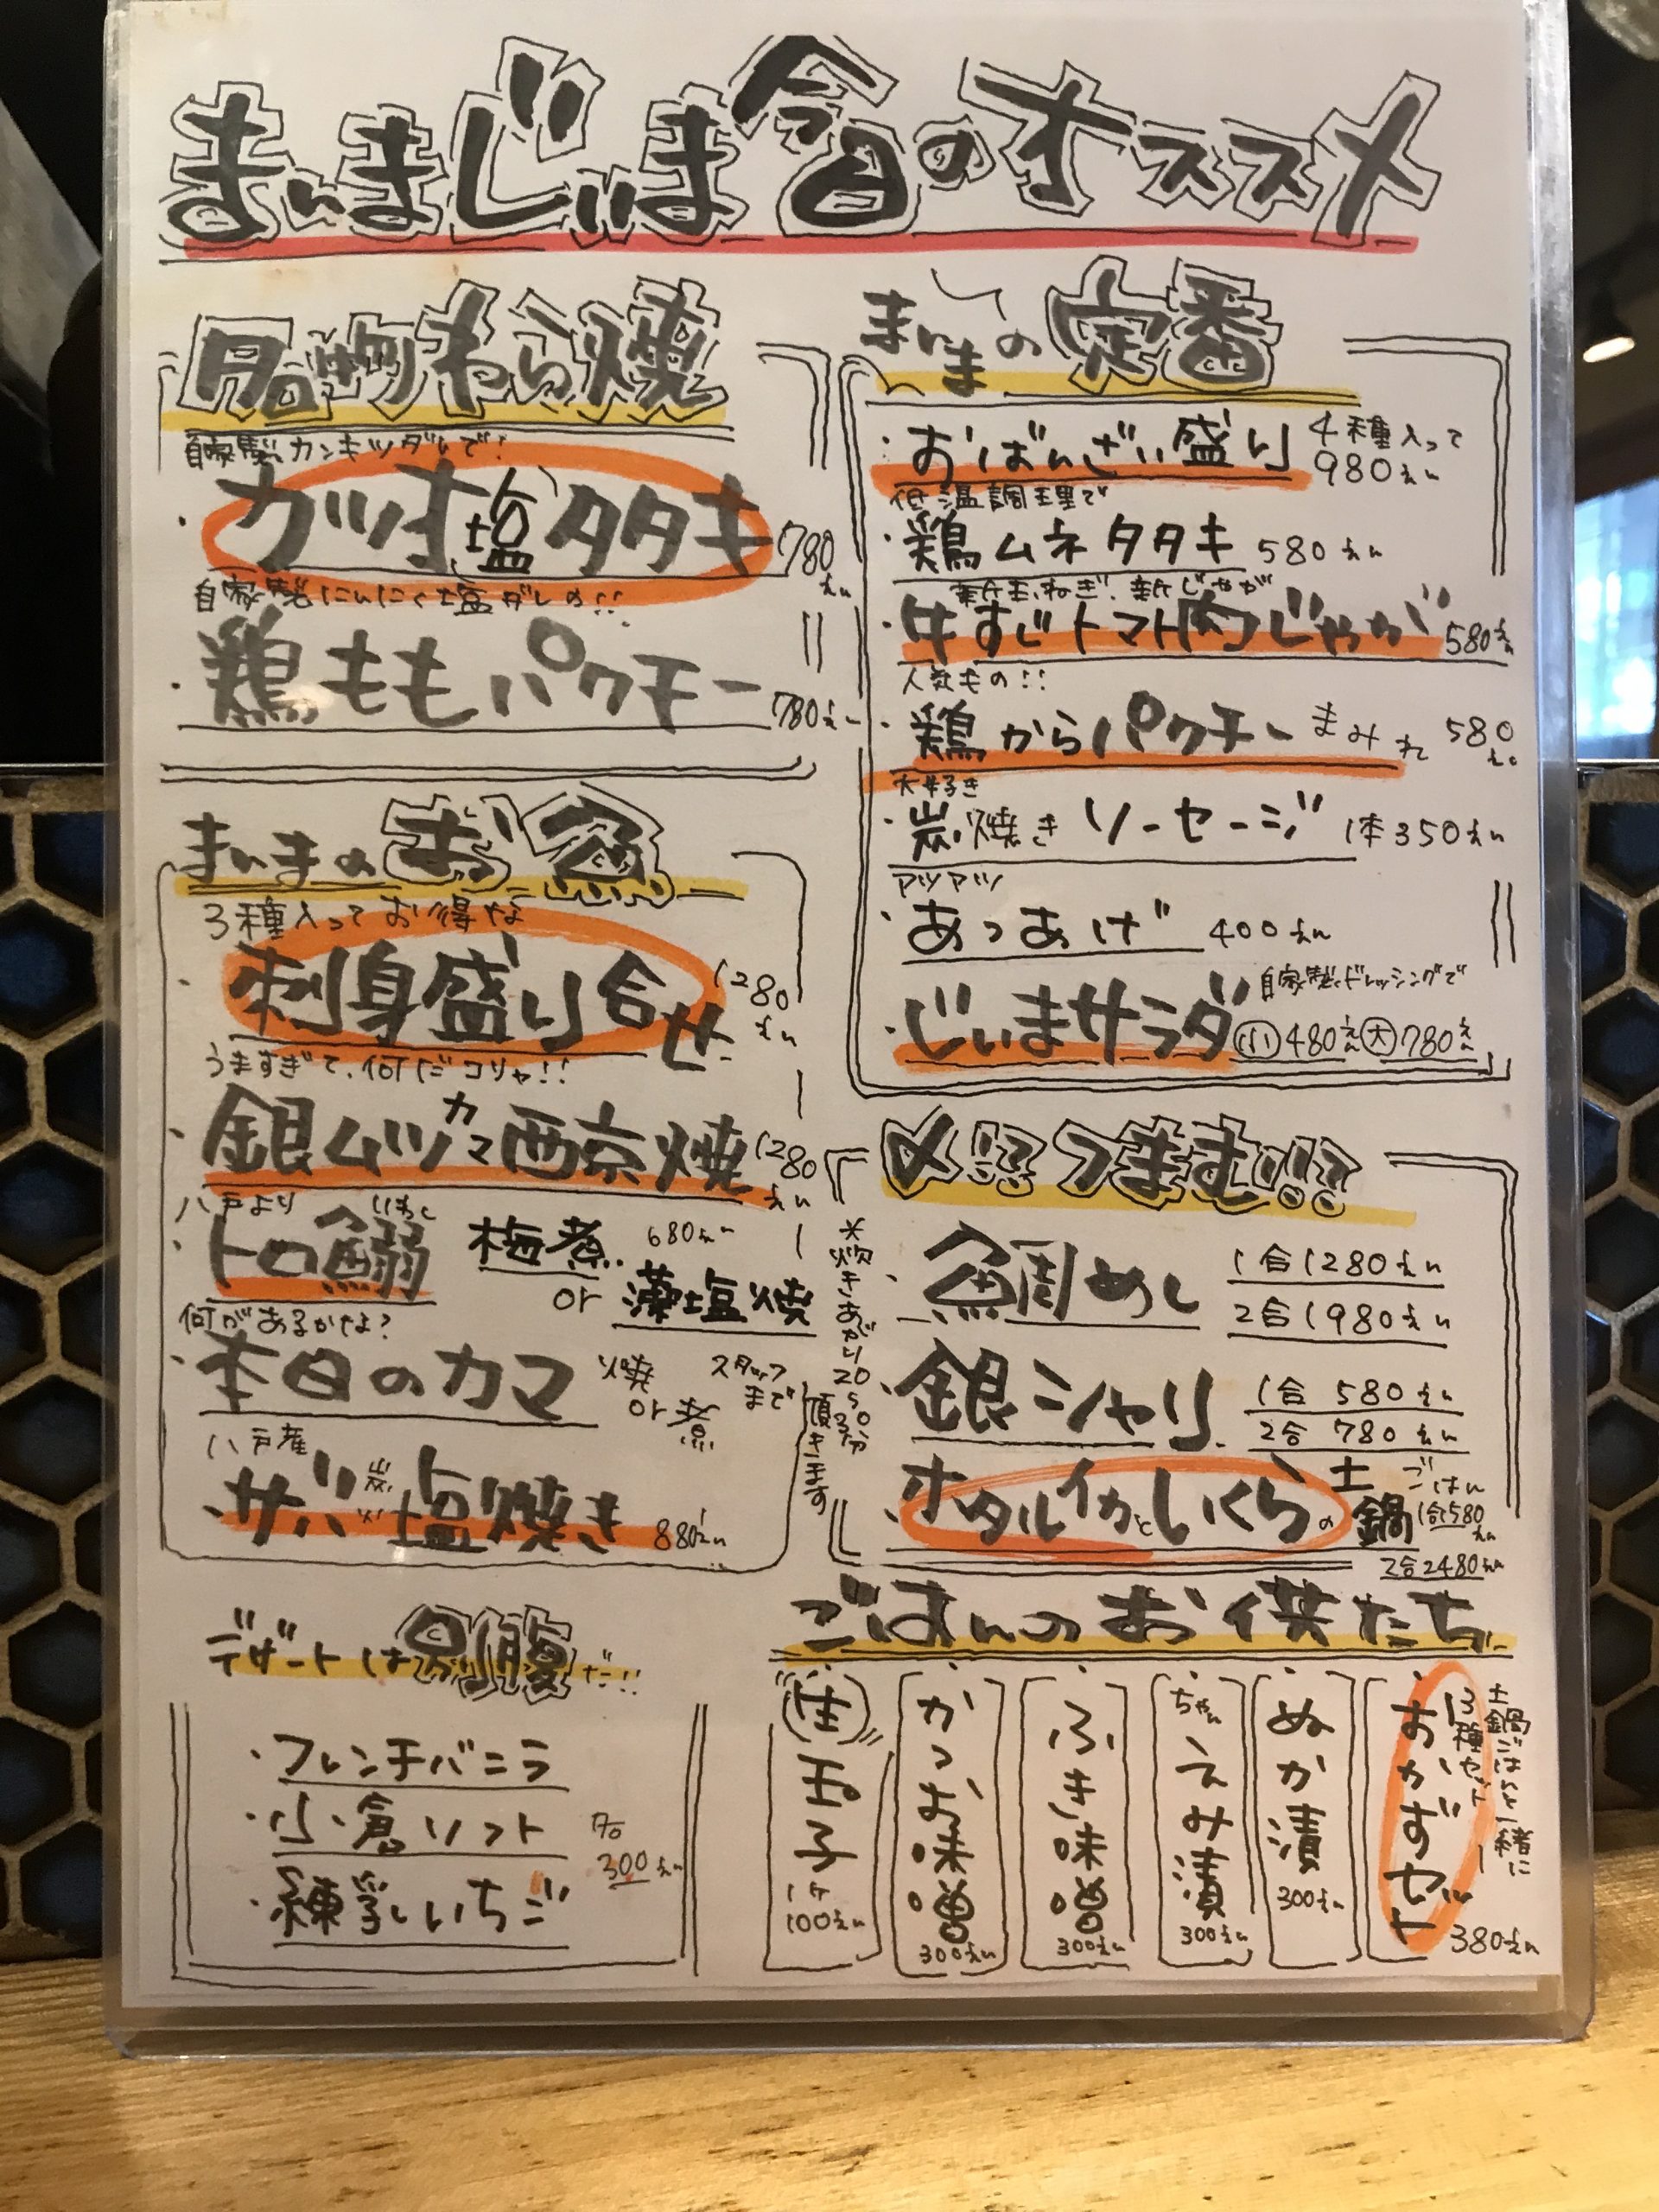 まいまじいま今日のオススメ
名物わら焼
自家製カンキツダレで!
・カツオ塩タタキ 780えん
自家製にんにく塩ダレの!!
・鶏ももパクチー 780えん
まいまのお魚
3種入ってお得な
・刺身盛り合せ 1280えん
うますぎて、何だコリャ!!
・銀ムツカマ西京焼 1280えん
八戸より いわし
・トロ鰯 梅煮 680えん
or 藻塩焼
何があるかなよ?
・本日のカマ 焼 or 煮 スタッフまで
八戸産
・サバ炭火塩焼き 880えん
デザートは別腹だ!!
・フレンチバニラ
・小倉ソフト 各300えん
・練乳いちご
まいまの定番
・おばんざい盛り 4種入って 980えん
低温調理で
・鶏ムネタタキ 580えん
新玉ねぎ、新じゃが
・牛すじトマト肉じゃが 580えん
人気もの!!
・鶏からパクチーまみれ 580えん
大好き
・炭焼きソーセージ 1本350えん
アツアツ
・あつあげ 400えん
自家製ドレッシングで
・じいまサラダ 小480えん 大780えん
〆!?つまむ!!?
*炊きあがり20~30分
頂きます
・鯛めし 1合1280えん
2合1980えん
・銀シャリ 1合 580えん
2合 780えん
・ホタルイカといくらの土鍋ごはん 1合1580えん
2合2480えん
ごはんのお供たち
土鍋ごはんと一緒に
3種セット
・おかずセット 380えん
・ぬか漬 300えん
・ちゃんえみ漬 300えん
・ふき味噌 300えん
・かつお味噌 300えん
・生玉子 1ケ100えん